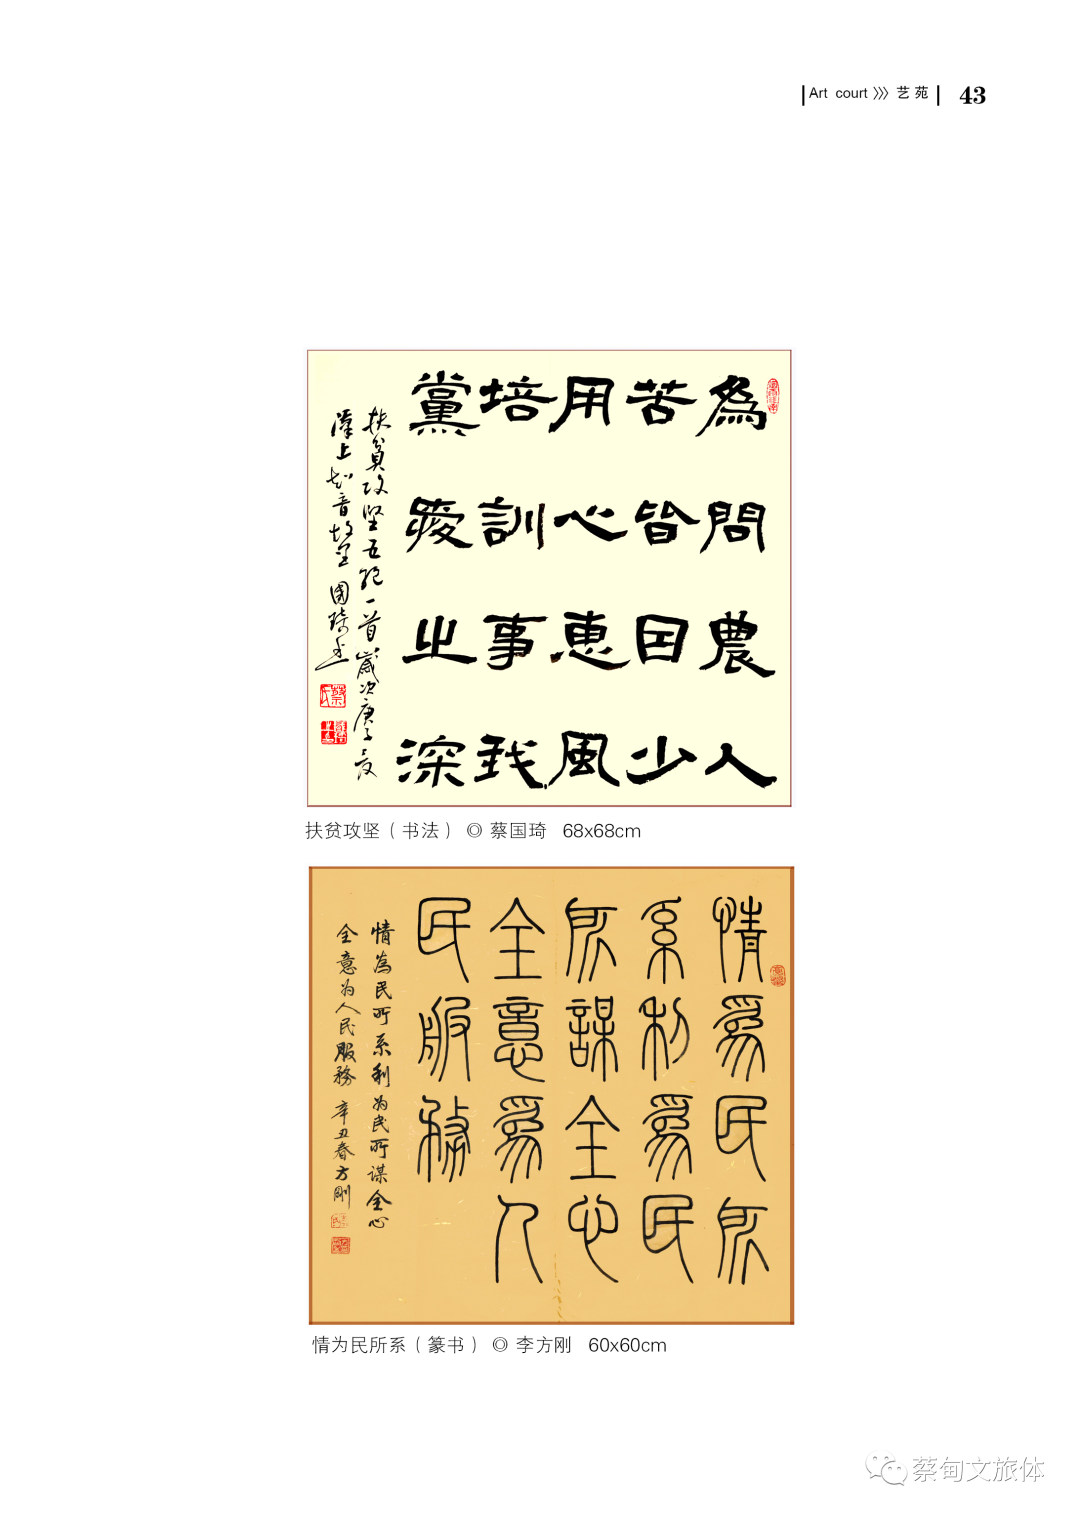 Art court 》 艺苑 43
為問農人
苦皆因少
用心惠風
培訓事我
黨愛之深
扶貧攻坚五绝一首 歲次庚子夏
漢上知音故里 國琦書
扶贫攻坚（书法） ◎ 蔡国琦 68x68cm
情為民所
系利為民
所謀全心
全意為人
民服務
情為民所系利为民所谋全心
全意为人民服務 辛丑春方剛
情为民所系（篆书） ◎ 李方刚 60x60cm
蔡甸文旅体